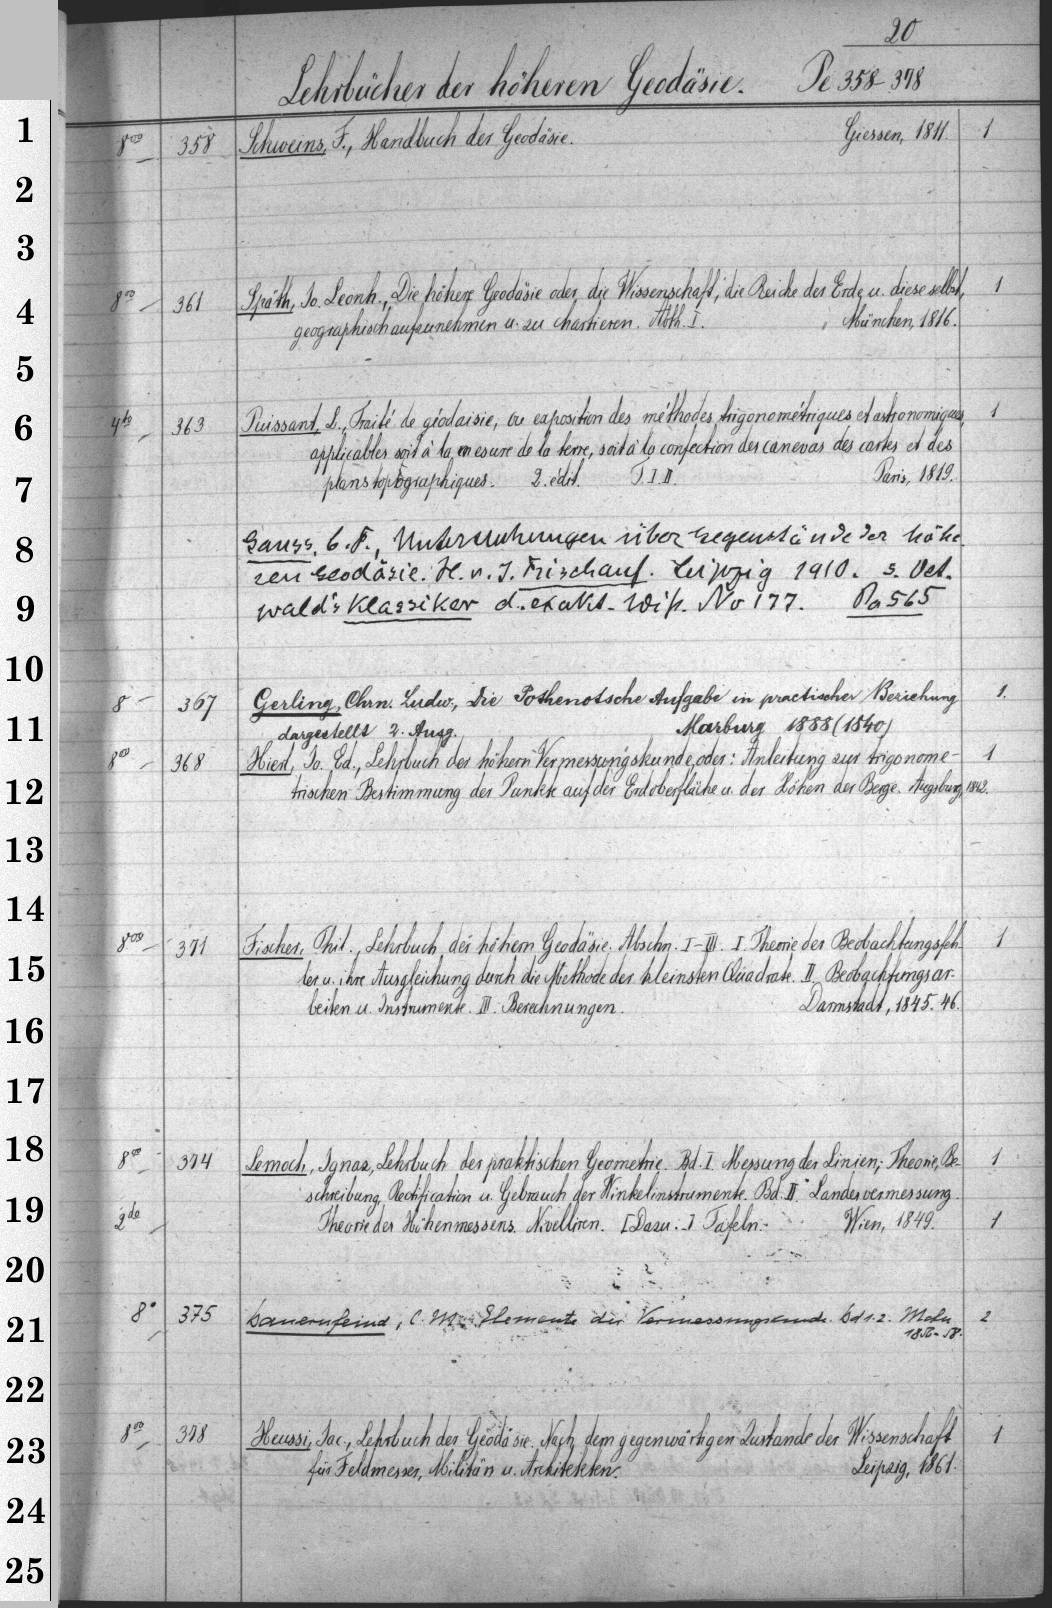 20
Lehrbücher der höheren Geodäsie. Pe 358-378
1
8vo 358 Schweins, F., Handbuch der Geodäsie. Giessen, 1811. 1
2
3
8vo 361 Späth, Jo. Leonh., Die höhere Geodäsie oder die Wissenschaft, die Reiche der Erde u. diese selbst, 1
4
geographisch aufzunehmen u. zu chartieren. Abth. I. München, 1816.
5
6
4to 363 Puissant, L., Traité de géodaisie, ou exposition des méthodes trigonométriques et astronomiques, 1
applicables soit à la mesure de la terre, soit à la confection des canevas des cartes et des
7
plans topographiques. 2. édit. T. I. II. Paris, 1819.
8
Gauss, C. F., Untersuchungen über Gegenstände der höhe-
ren Geodäsie. H. v. J. Frischauf. Leipzig 1910. s. Ost-
9
wald's Klassiker d. exakt. Wiss. No 177. Pa 565
10
8 367 Gerling, Chrn. Ludw., Die Pothenotsche Aufgabe in practischer Beziehung 1.
11
dargestellt 2. Ausg. Marburg 1888 (1840)
8vo 368 Hierl, Jo. Ed., Lehrbuch der höhern Vermessungskunde, oder: Anleitung zur trigonome- 1
12
trischen Bestimmung der Punkte auf der Erdoberfläche u. der Höhen der Berge. Augsburg, 1842.
13
14
8vo 371 Fischer, Phil., Lehrbuch der höhern Geodäsie. Abschn. I-III. I. Theorie der Beobachtungsfeh- 1
15
ler u. ihre Ausgleichung durch die Methode der kleinsten Quadrate. II. Beobachtungsar-
beiten u. Instrumente. III. Berechnungen. Darmstadt, 1845. 46.
16
17
18
8vo 374 Lemoch, Ignaz, Lehrbuch der praktischen Geometrie. Bd. I. Messung der Linien; Theorie, Be- 1
schreibung, Rectification u. Gebrauch der Winkelinstrumente. Bd. II. Landesvermessung.
19
2do Theorie des Höhenmessens. Nivelliren. [Dazu:] Tafeln. Wien, 1849. 1
20
8° 375 Bauernfeind, C. M. Elemente der Vermessungskunde. Bd 1. 2. 2
21
22
8vo 378 Heussi, Jac., Lehrbuch der Geodäsie. Nach dem gegenwärtigen Zustande der Wissenschaft 1
23
für Feldmesser, Militärs u. Architekten. Leipzig, 1861.
24
25